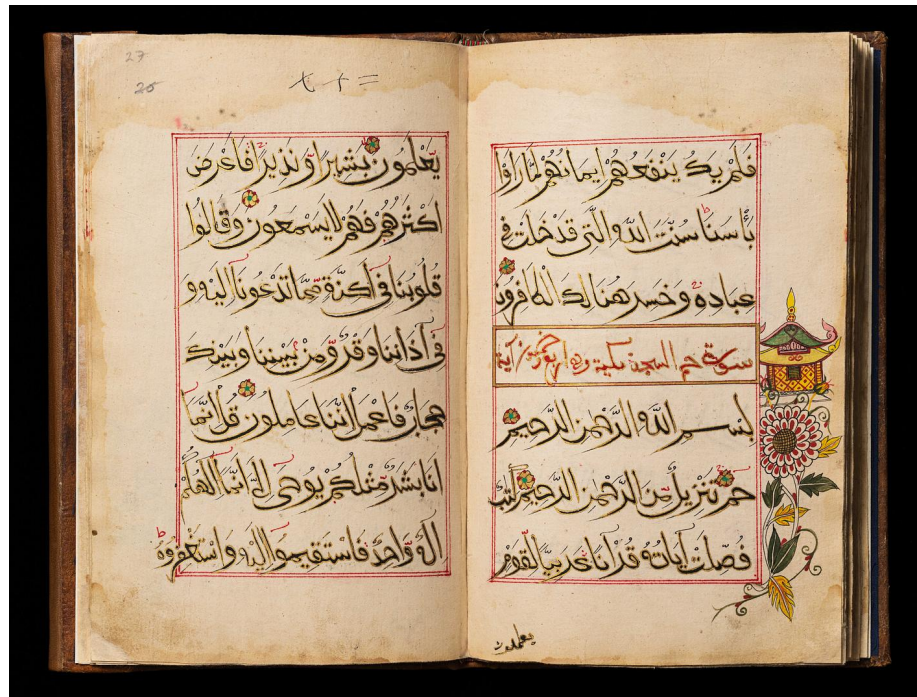 فلم يك ينفعهم ايمانهم لما راوا
بأسنا سنت الله التى قد خلت فى
عباده وخسر هنالك الكافرون
سورة حم السجدة مكية وهى اربع آية
بسم الله الرحمن الرحيم
حم تنزيل من الرحمن الرحيم كتب
فصلت آياته قرآنا عربيا لقوم
يعلمون
27
25
يعلمون بشيرا ونذيرا فاعرض
اكثرهم فهم لا يسمعون وقالوا
قلوبنا فى أكنة مما تدعونا اليه و
فى آذاننا وقر ومن بيننا وبينك
حجاب فاعمل اننا عاملون قل انما
انا بشر مثلكم يوحى الى انما الهكم
اله واحد فاستقيموا اليه واستغفروه